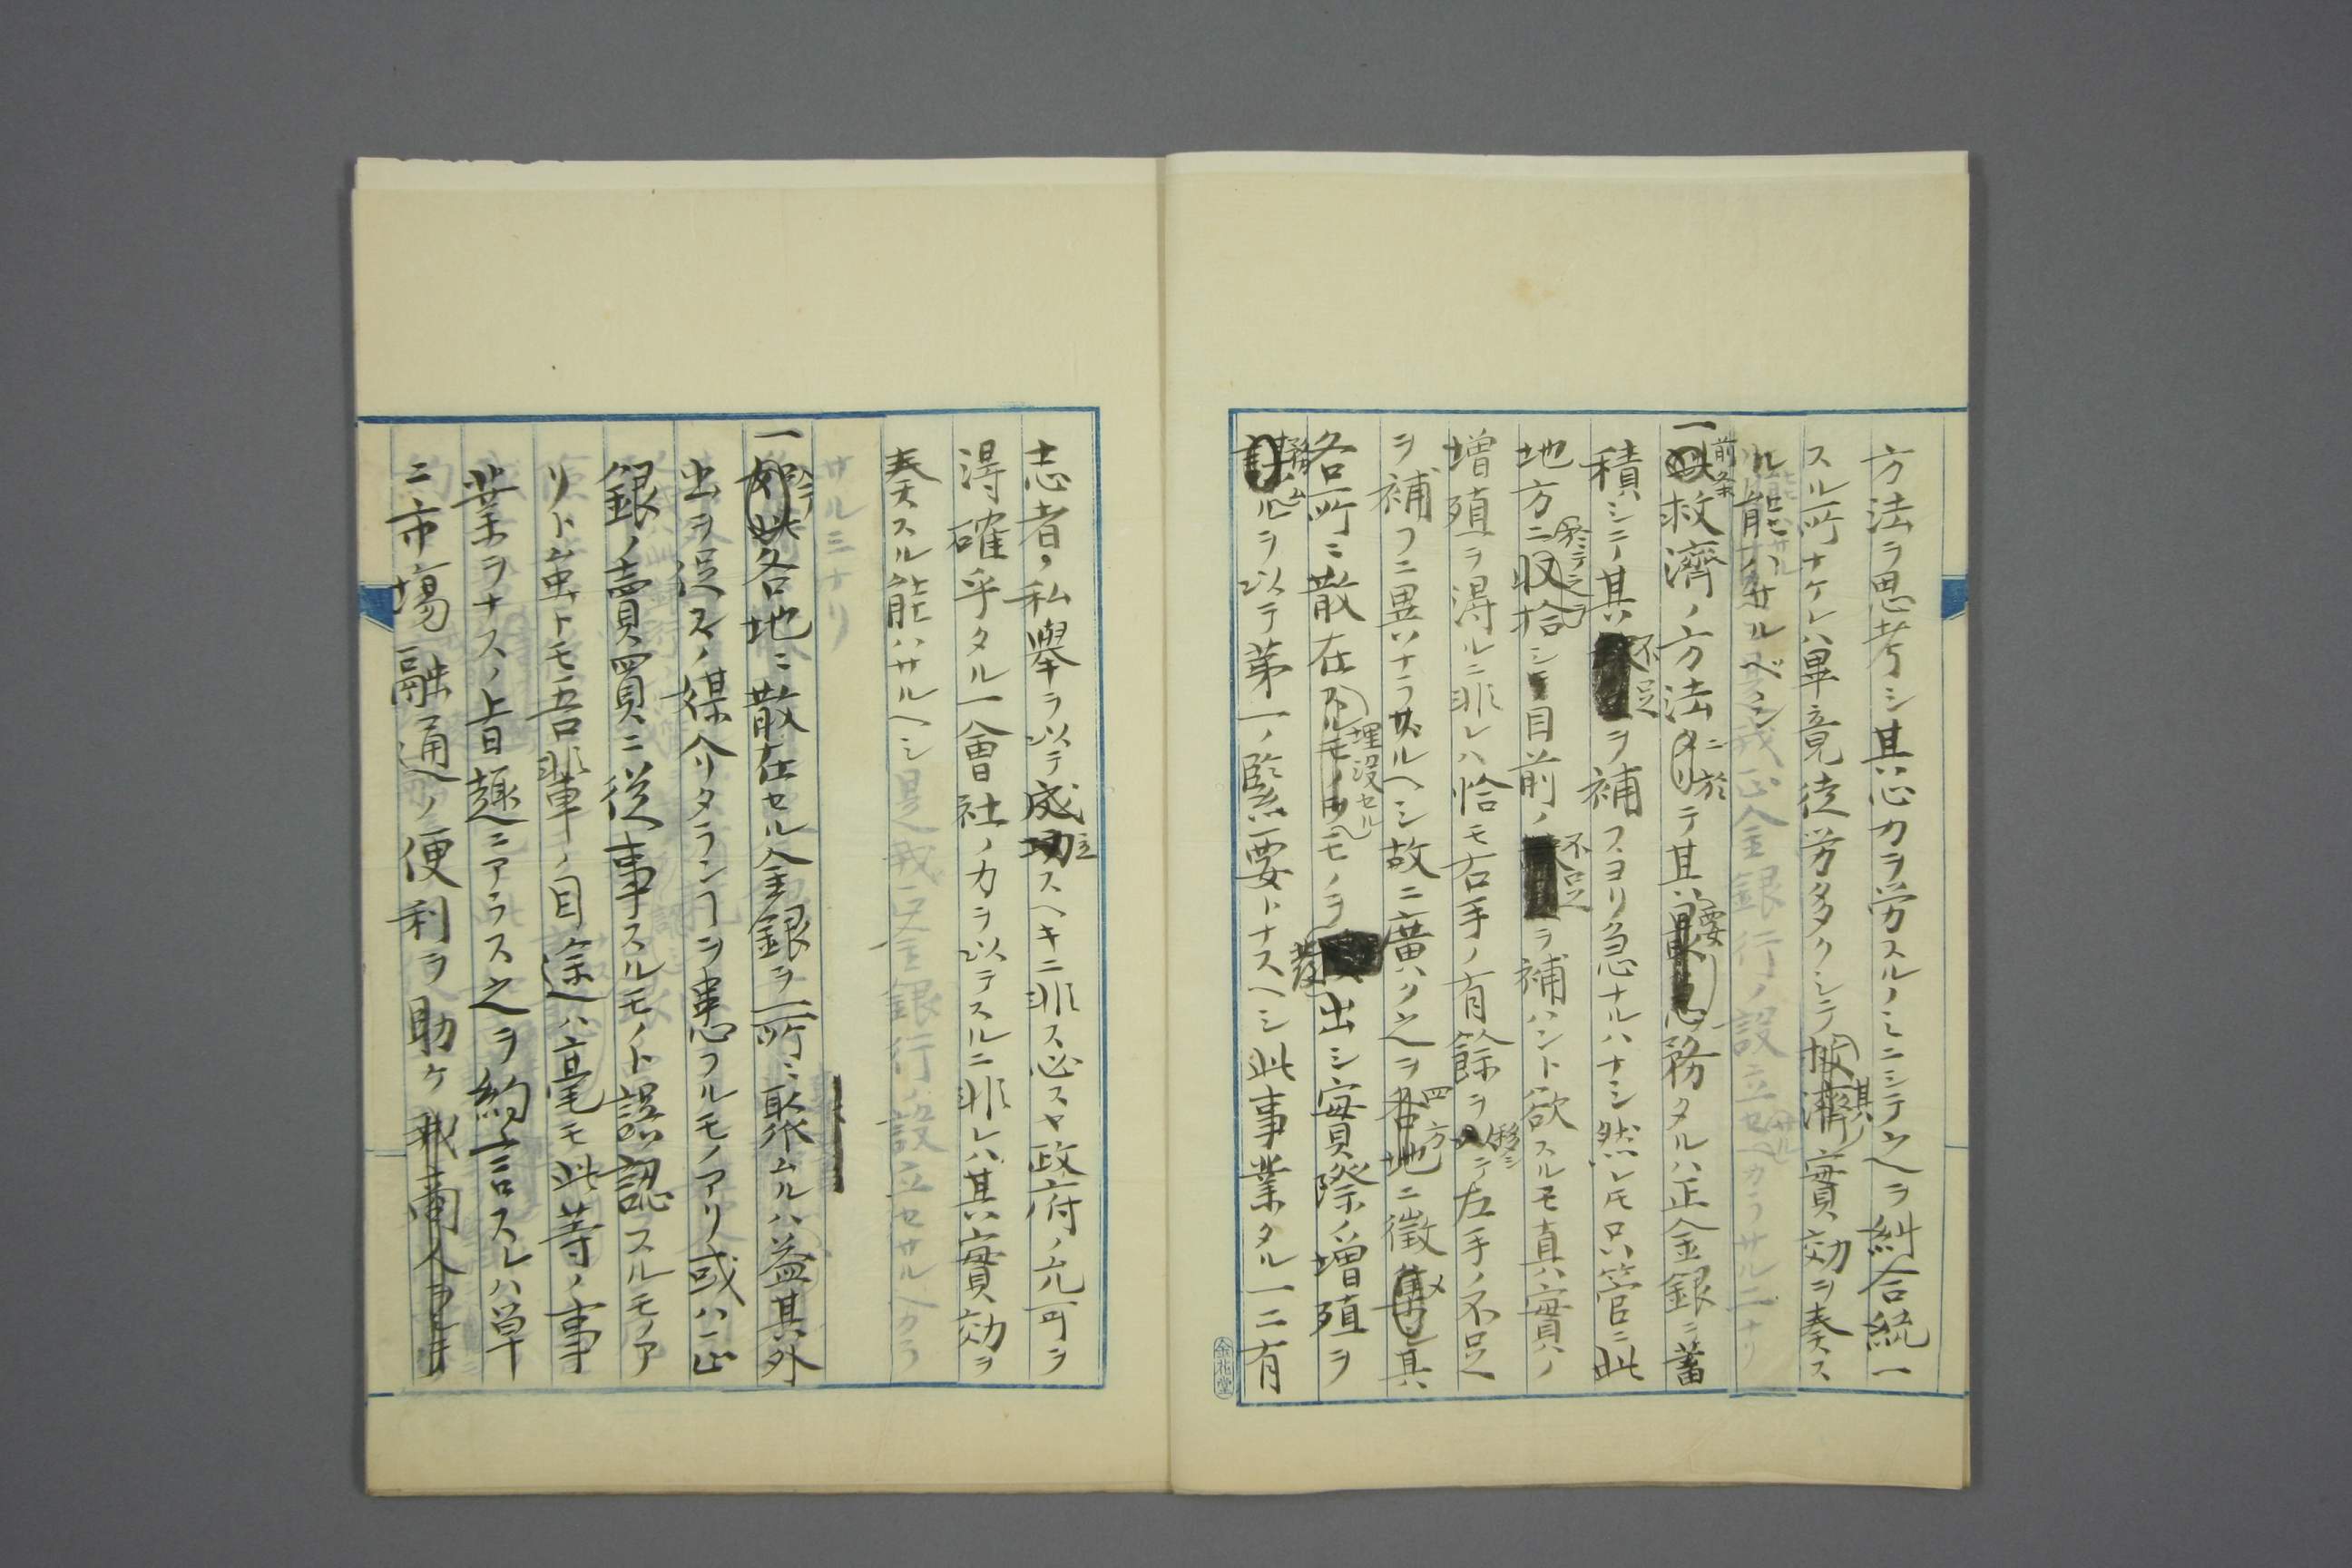 方法ヲ思考シ其心力ヲ労スルノミニシテ之ヲ糾合統一
スル所ナケレハ畢竟徒労多クシテ救濟ノ實効ヲ奏ス
其ノ
ル能ハサルベシ
一此救濟ノ方法タリテ其最急務タルハ正金銀ニ蓄
前条
ニ於
要
積シテ其
ヲ補フヨリ急ナルハナシ然レモ只管ニ此
不足
地方ニ収拾シ目前ノ
ヲ補ハント欲スルモ真實ノ
不足
増殖ヲ得ルニ非レハ恰モ右手ノ有餘ヲ
テ左手ノ不足
移シ
ヲ補フニ異ハナラザルヘシ故ニ廣ク之ヲ各地ニ徴集シ其
四方
メ
各所ニ散在スルモノ
モノヲ
出シ實際ノ増殖ヲ
埋没セル
発
心ヲ以テ第一ノ緊要トナスヘシ此事業タル一二有
金花堂
志者ノ私舉ヲ以テ成功スヘキニ非ス必スヤ政府ノ允可ヲ
立
得確乎タル一會社ノ力ヲ以テスルニ非レハ其實効ヲ
奏スル能ハサルヘシ
サル三ナリ
一如此各地ニ散在セル金銀ヲ一所ニ聚ムルハ益其外
於テ
出ヲ促スノ媒介タランヿヲ患フルモノアリ或ハ正
銀ノ賣買ニ從事スルモノト誤認スルモノア
リト雖トモ吾輩ノ目途ハ毫モ此等ノ事
業ヲナスノ旨趣ニアラス之ヲ約言スレハ単
ニ市塲融通ノ便利ヲ助ケ我商人